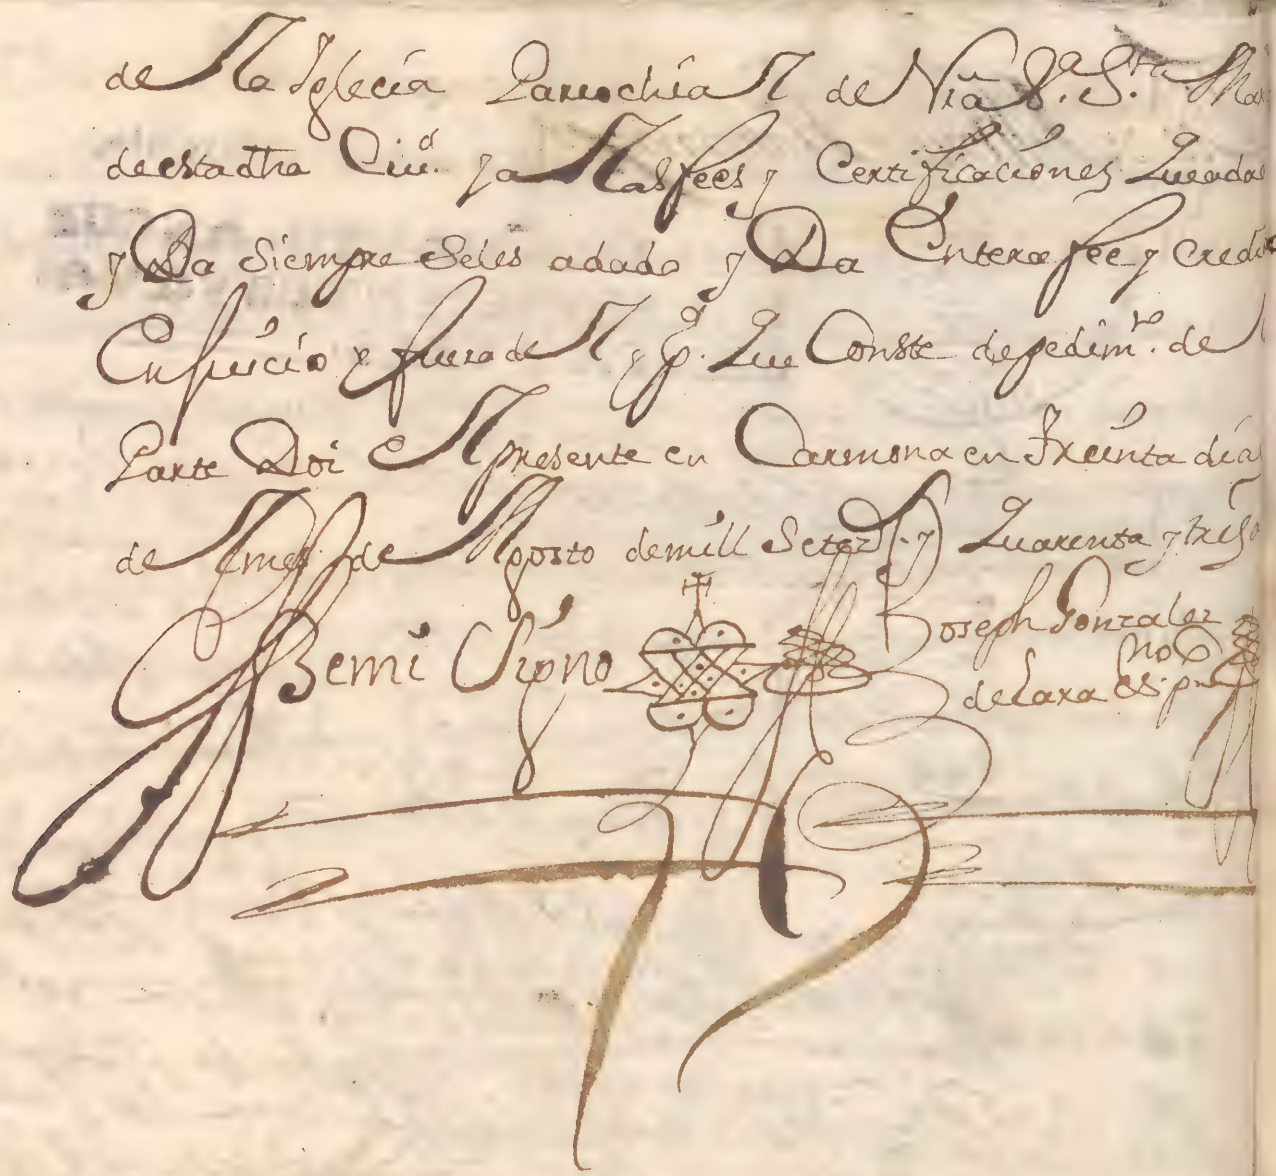 de la Iglecia Parrochial de Nra S.ª S.ta Mar
de esta dha Ciu.d y a las fees y Certificaciones que a dado
y Da siempre se les a dado y Da Entera fee y credi
En Juicio y fuera del y p.a que Conste de pedim.to de l
Parte Doi el presente en Carmona en treinta dias
del mes de Agosto de mill Setez.s y Quarenta y tres a
Bemi Signo
Joseph Gonzalez
de Lara es.no pu.co